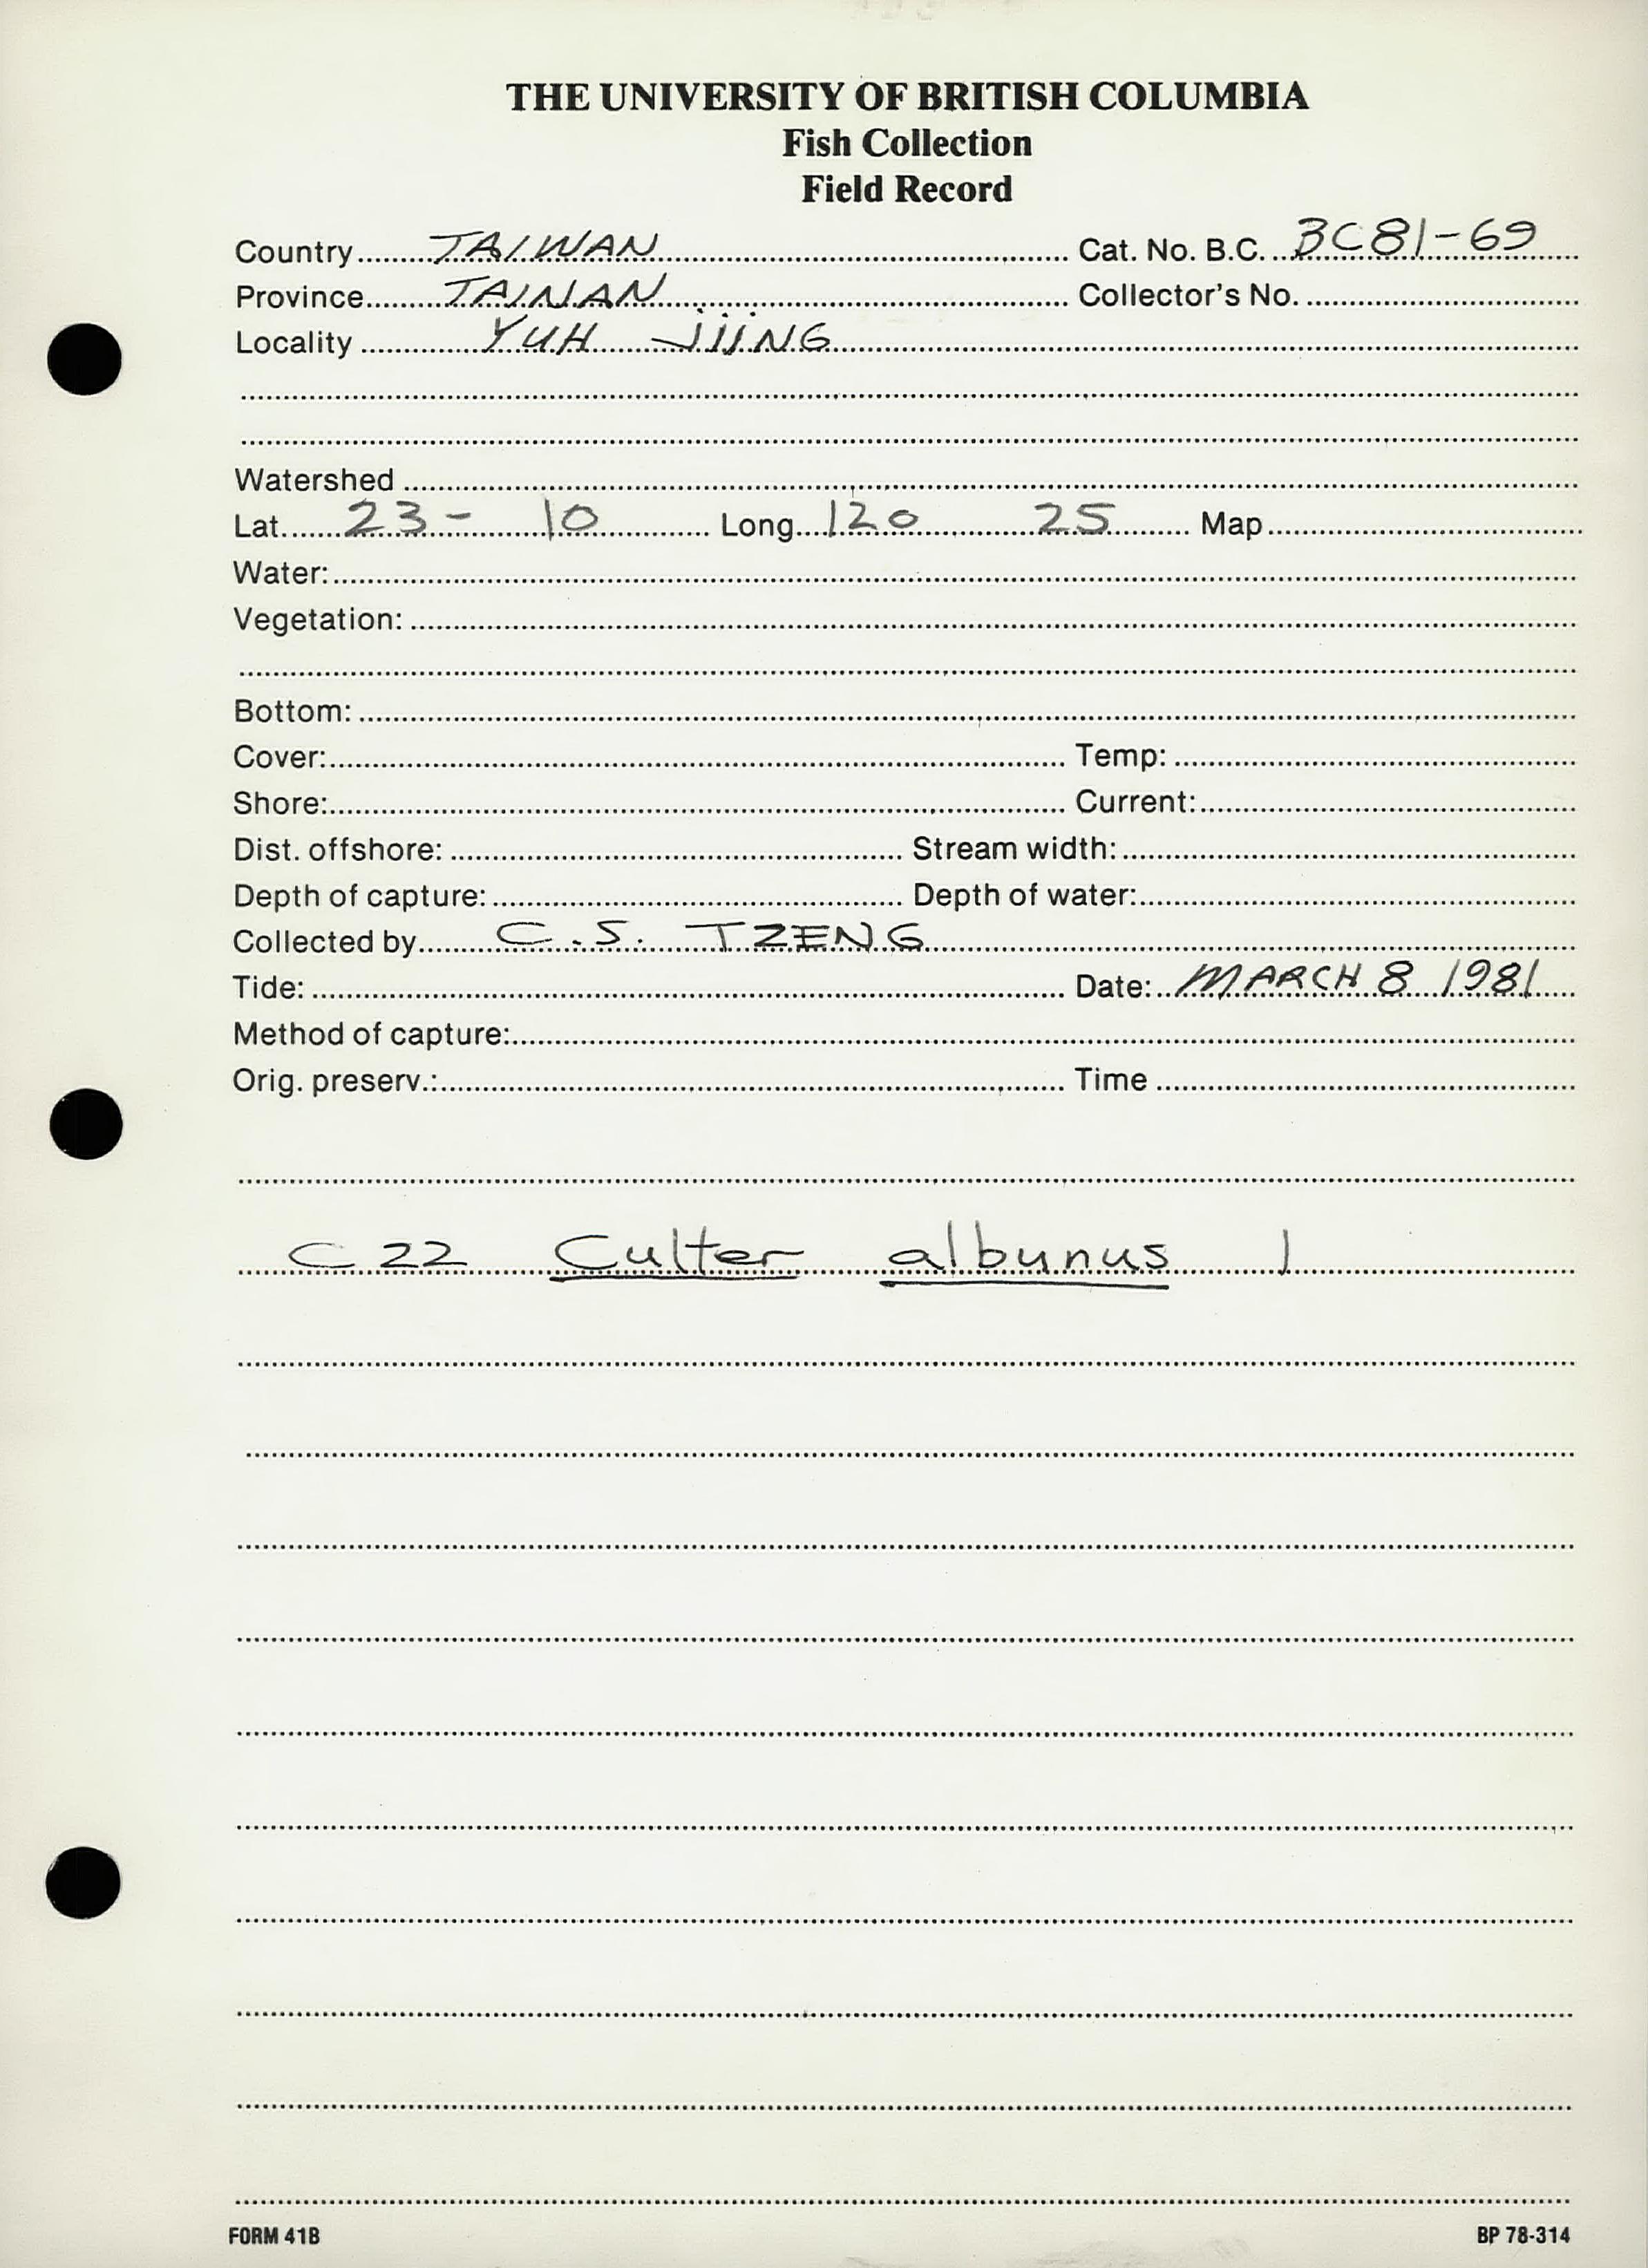 THE UNIVERSITY OF BRITISH COLUMBIA
Fish Collection
Field Record
Country TAIWAN Cat. No. B.C. BC81-69
Province TAINAN Collector's No.
Locality YUH JIING
Watershed
Lat. 23- 10 Long 120 25 Map
Water:
Vegetation:
Bottom:
Cover: Temp:
Shore: Current:
Dist. offshore: Stream width:
Depth of capture: Depth of water:
Collected by C.S. TZENG
Tide: Date: MARCH 8 1981
Method of capture:
Orig. preserv.: Time
C22 Culter albunus 1
FORM 41B BP 78-314